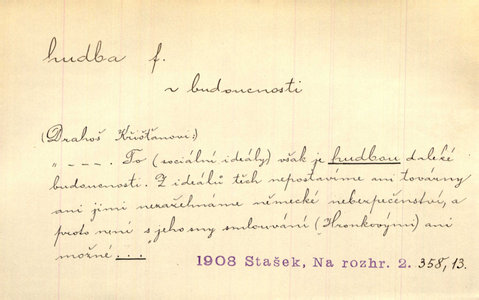 hudba f.
v budoucnosti
(Drahoš Křišťanovi:)
„ – – – . To (sociální ideály) však je hudbou daleké
budoucnosti. Z ideálů těch nepostavíme ani továrny
ani jimi nezažehnáme německé nebezpečenství, a
proto není s jeho sny smlouvání (Hronkovými) ani
možné . . . "
1908 Stašek, Na rozhr. 2. 358, 13.